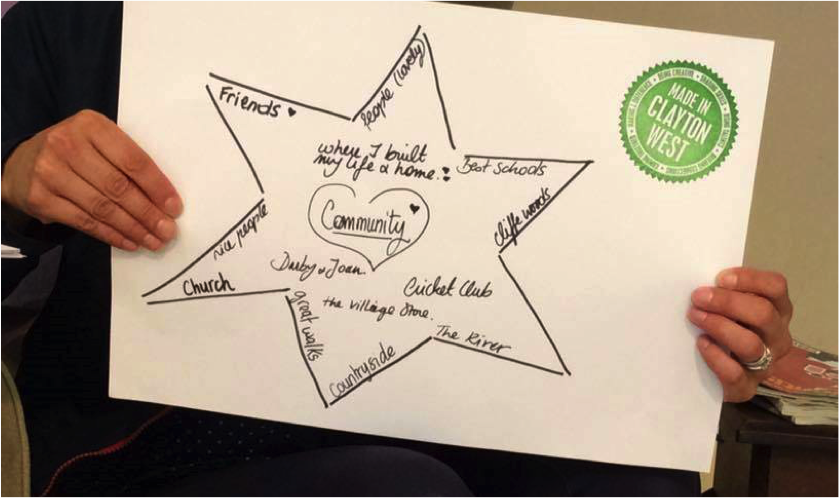 people (lovely)
Friends ♥
where I built
my life & home :
Best Schools
Cliffe woods
Community
nice people
Darby & Joan
Church
Cricket Club
the village Store.
great walks
The River
Countryside
MADE IN
CLAYTON
WEST
BEING CREATIVE